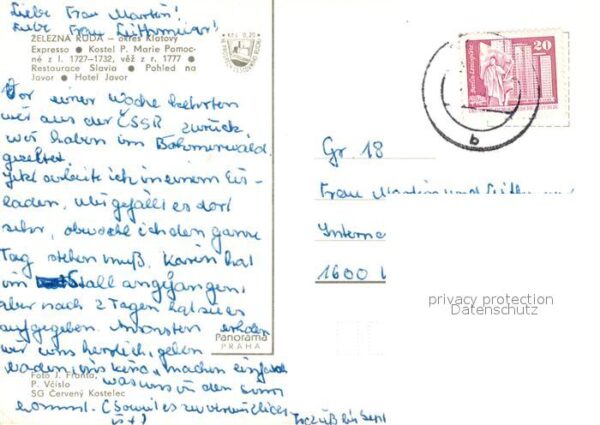 Liebe Frau Martin!
Liebe Frau
ŽELEZNÁ RUDA – okres Klatovy
Expresso ● Kostel P. Marie Pomoc-
né z l. 1727–1732, věž z r. 1777 ●
Restaurace Slavia ● Pohled na
Javor ● Hotel Javor
Kčs 0,20
Vor einer Woche kehrten
wir aus der ČSSR zurück,
wir haben im Böhmerwald
gezeltet.
Jetzt arbeite ich in einem Eis-
laden, mir gefällt es dort
sehr, obwohl ich den ganzen
Tag stehen muß. Karin hat
im Stall angefangen,
aber nach 2 Tagen hat sie es
aufgegeben. Ansonsten erholen
wir uns herzlich, gehen
baden, ins Kino, machen einfach
was uns in den Sinn
kommt. (Somit es zu
Tschüß bis Sept
Panorama
PRAHA
Foto J. Franta,
P. Včíslo
SG Červený Kostelec
20
b
Gr. 18
Frau Martin und
Interna
1600
privacy protection
Datenschutz